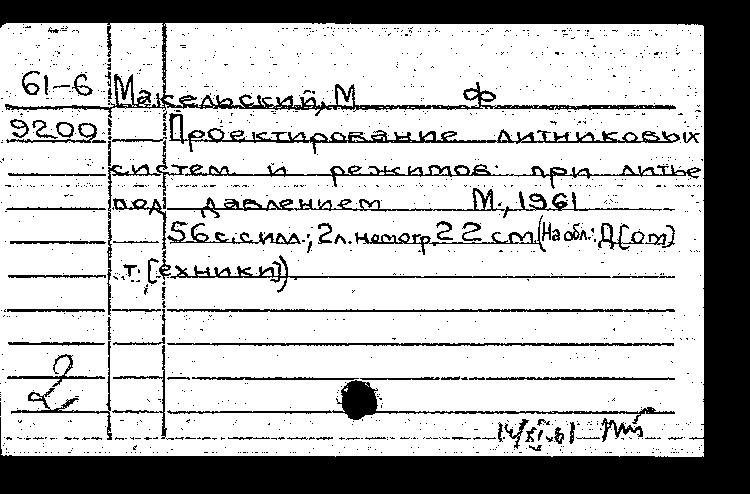 61-6 Макельский, М Ф
9200 Проектирование литниковых
систем и режимов при литье
под давлением М., 1961
56 с. с илл.; 2 л. номогр. 22 см (На обл.: Д[ом]
т.[ехники])
2
14/XI-61